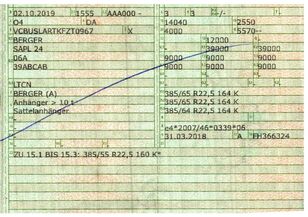 02.10.2019 1555 AAA000 - 3 3 -/-
04 DA 14040 2550
VCBUSLARTKFZT0967 X 4000 5570--
BERGER 12000
SAPL 24 39000 39000
06A 9000 9000 9000
39ABCAB 9000 9000 9000
LTCN
BERGER (A) 385/65 R22,5 164 K
Anhänger > 10 t 385/65 R22,5 164 K
Sattelanhänger 385/65 R22,5 164 K
e4*2007/46*0339*06
31.03.2018 A FH366324
ZU 15.1 BIS 15.3: 385/55 R22,5 160 K*